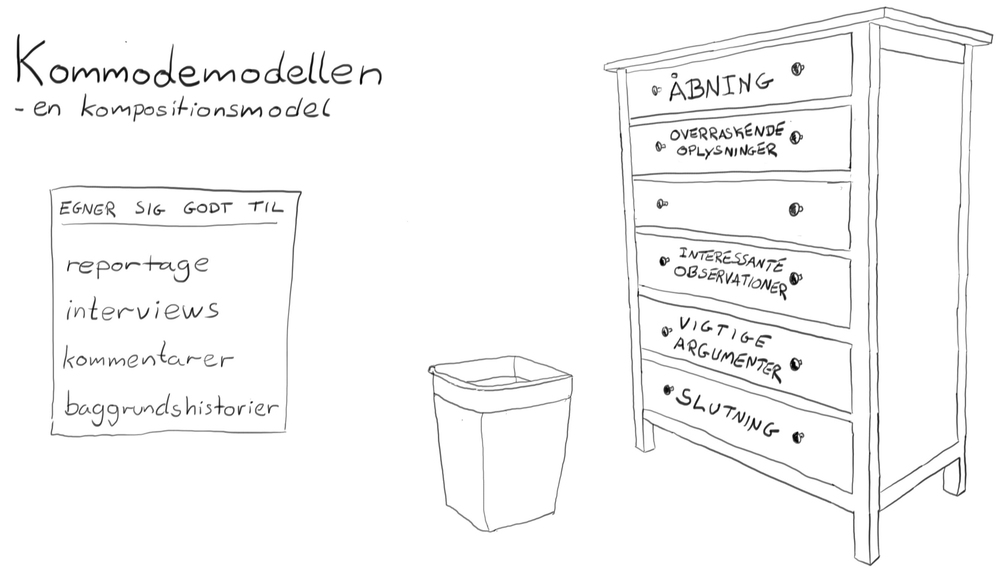 Kommodemodellen
- en kompositionsmodel
EGNER SIG GODT TIL
reportage
interviews
kommentarer
baggrundshistorier
ÅBNING
OVERRASKENDE
OPLYSNINGER
INTERESSANTE
OBSERVATIONER
VIGTIGE
ARGUMENTER
SLUTNING